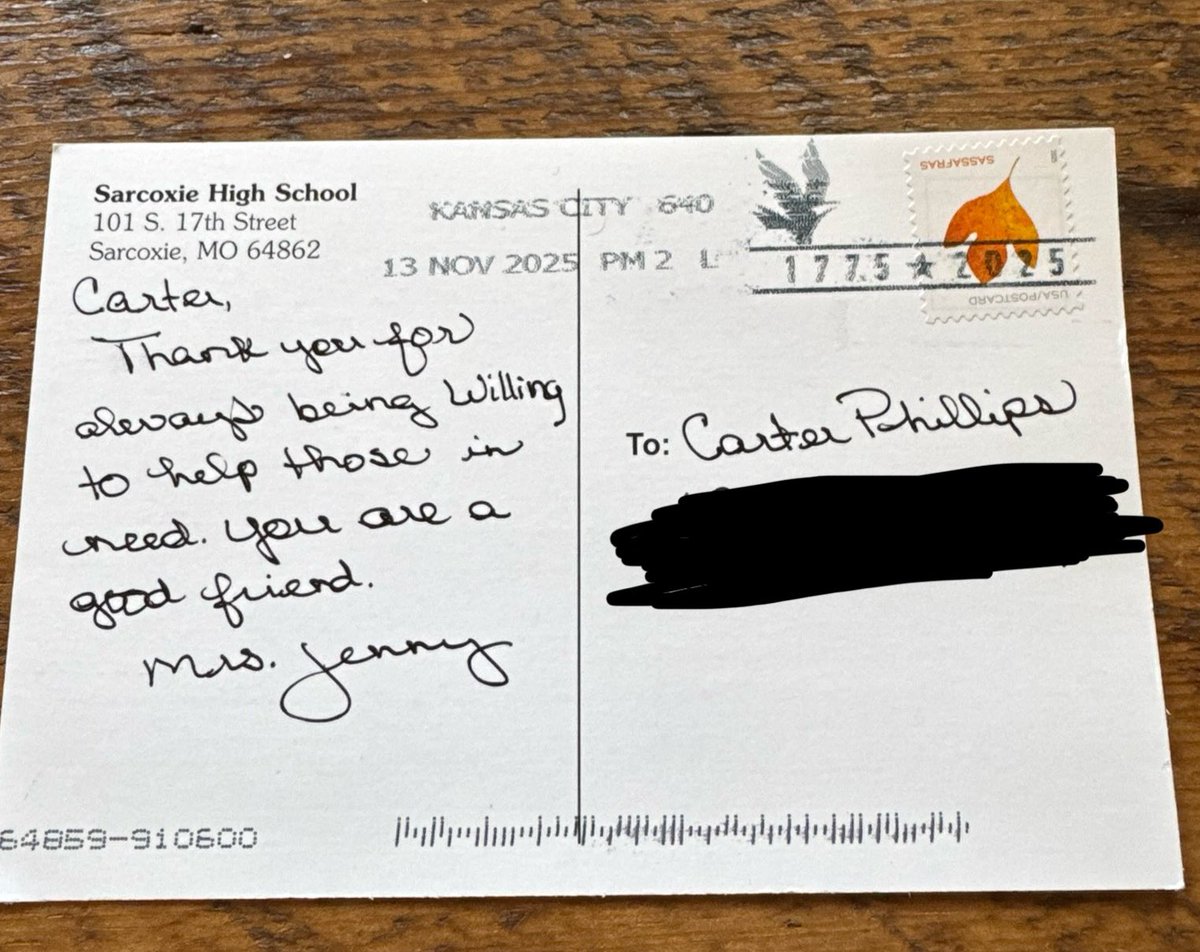 Sarcoxie High School
101 S. 17th Street
Sarcoxie, MO 64862
KANSAS CITY 640
13 NOV 2025 PM 2 L
1775 ★ 2025
SASSAFRAS
USA/POSTCARD
Carter,
Thank you for
always being Willing
to help those in
need. You are a
good friend.
Mrs. Jenny
To: Carter Phillips
64859-910600